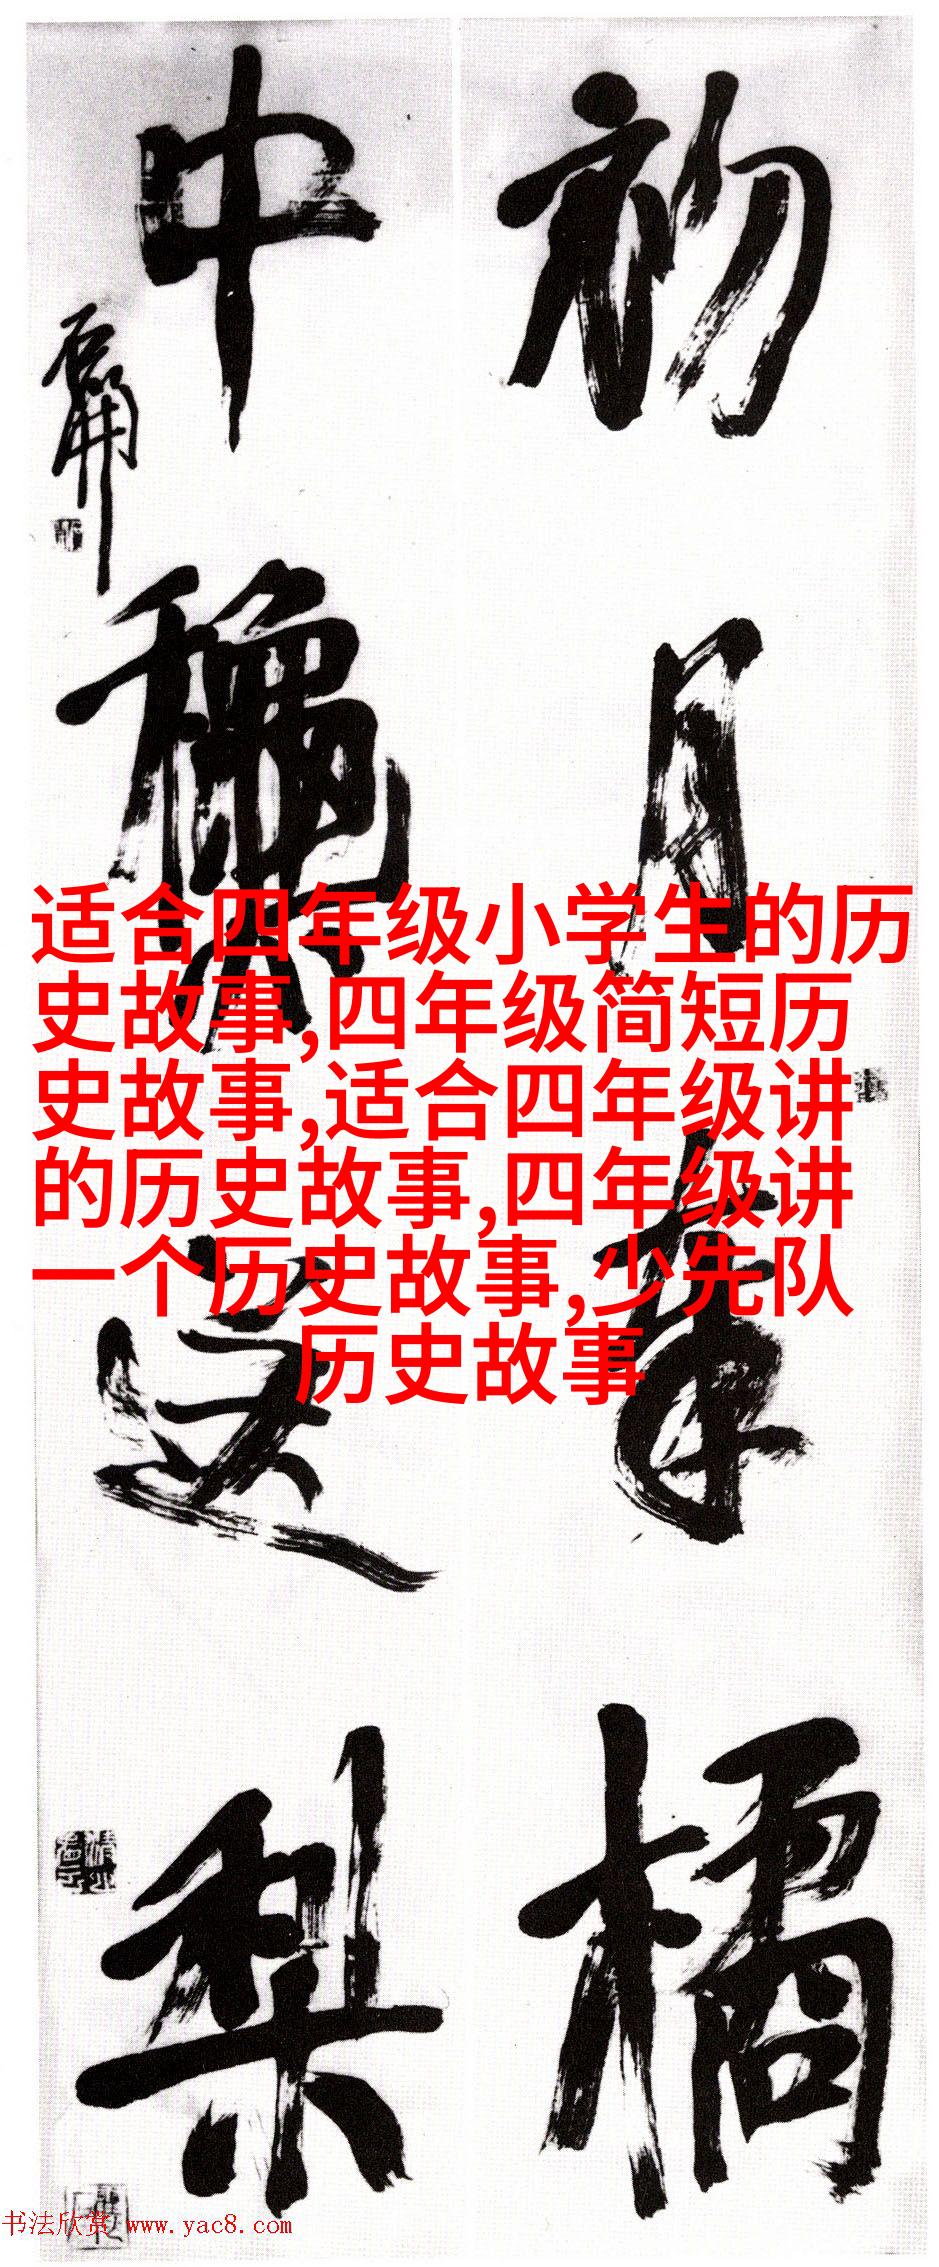 初月橘
中梨
适合四年级小学生的历
史故事,四年级简短历
史故事,适合四年级讲
的历史故事,四年级讲
一个历史故事,少先队
历史故事
书法欣赏 www.yac8.com